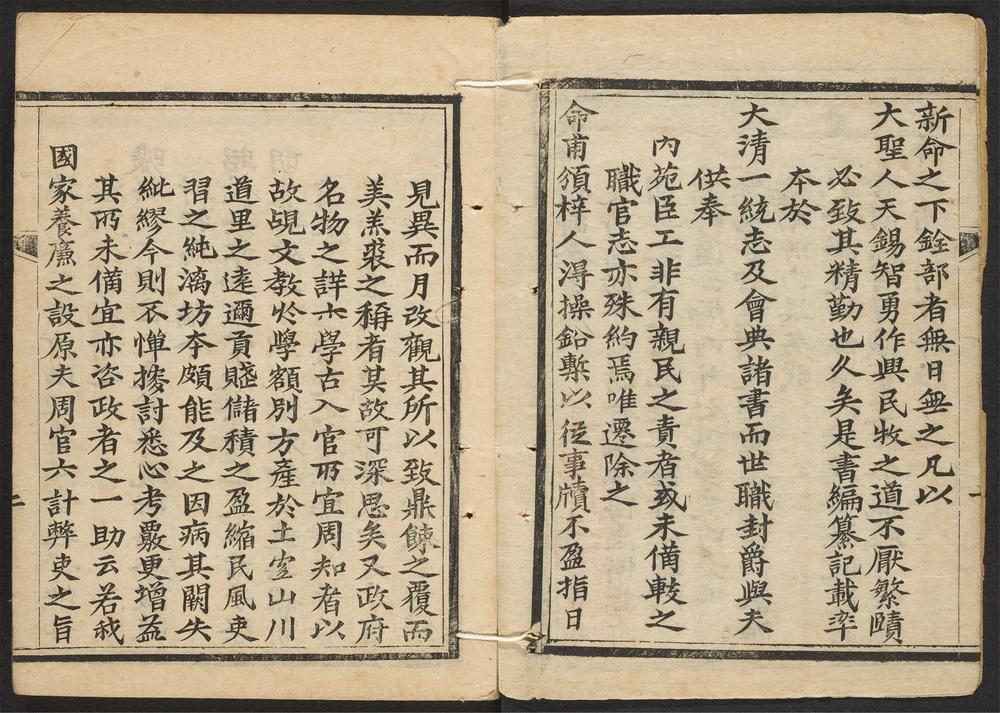 新命之下銓部者無日無之凡以
大聖人天錫智勇作興民牧之道不厭繁賾
必致其精勤也久矣是書編纂記載率
夲於
大清一統志及會典諸書而世職封爵與夫
供奉
内苑臣工非有親民之責者或未備載之
職官志亦殊約焉唯遷除之
命甫頒梓人淂操鉛槧以從事牘不盈指日
見異而月改觀其所以致鼎餗之覆而
美羔裘之稱者其故可深思矣又政府
名物之詳大學古入官所宜周知者以
故覘文教於學額別方產於土宜山川
道里之遠邇貢賦儲積之盈縮民風吏
習之純漓坊夲頗能及之因病其闕失
紕繆今則不憚搜討悉心考覈更增益
其所未備宜亦咨政者之一助云若我
國家養廉之設原夫周官六計弊吏之旨
二